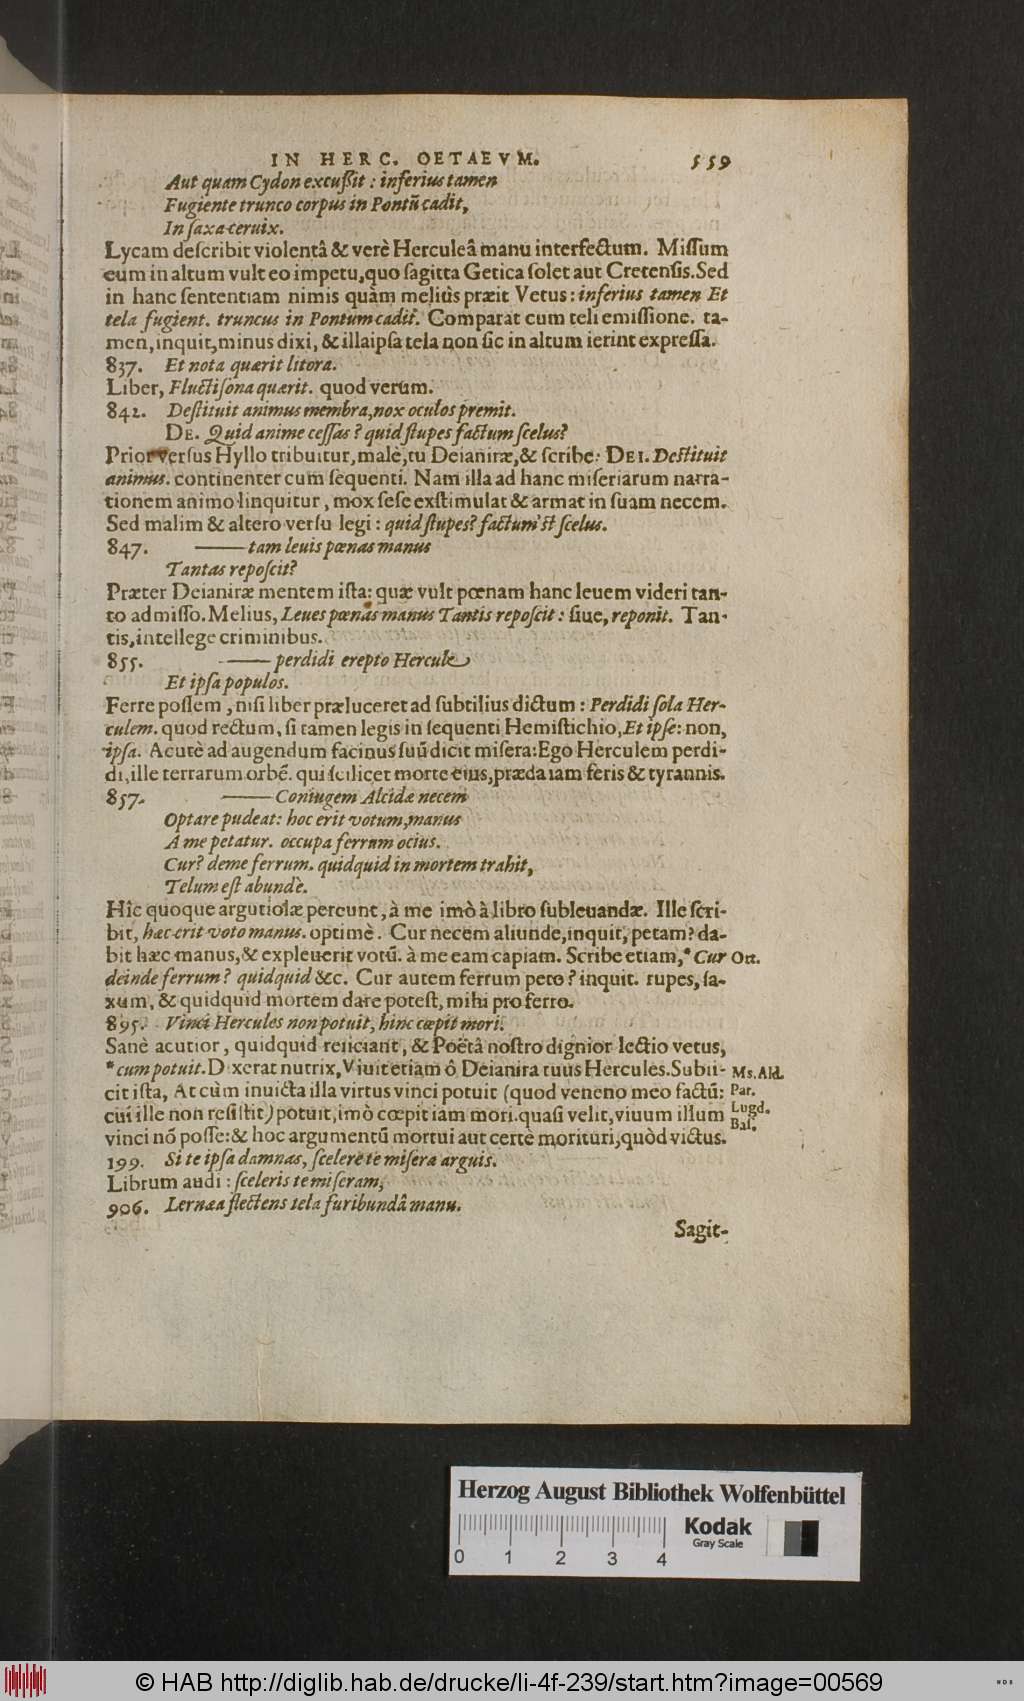 IN HERC. OETAEVM. 559
Aut quam Cydon excußit : inferius tamen
Fugiente trunco corpus in Pontũ cadit,
In ſaxa ceruix.
Lycam deſcribit violentâ & verè Herculeâ manu interfectum. Miſſum
eum in altum vult eo impetu, quo ſagitta Getica ſolet aut Cretenſis. Sed
in hanc ſententiam nimis quàm meliùs præit Vetus : inferius tamen Et
tela fugient. truncus in Pontum cadit. Comparat cum teli emiſſione. ta-
men, inquit, minus dixi, & illa ipſa tela non ſic in altum ierint expreſſa.
837. Et nota quærit litora.
Liber, Fluctiſona quærit. quod verum.
842. Deſtituit animus membra, nox oculos premit.
DE. Quid anime ceſſas ? quid ſtupes factum ſcelus?
Prior verſus Hyllo tribuitur, malè, tu Deianiræ, & ſcribe: DEI. Deſtituit
animus. continenter cum ſequenti. Nam illa ad hanc miſeriarum narra-
tionem animo linquitur, mox ſeſe exſtimulat & armat in ſuam necem.
Sed malim & altero verſu legi : quid ſtupes? factum'ſt ſcelus.
847. —— tam leuis pœnas manus
Tantas repoſcit?
Præter Deianiræ mentem iſta: quæ vult pœnam hanc leuem videri tan-
to admiſſo. Melius, Leues pœnas manus Tantis repoſcit : ſiue, reponit. Tan-
tis, intellege criminibus.
855. —— perdidi erepto Hercule
Et ipſa populos.
Ferre poſſem, niſi liber præluceret ad ſubtilius dictum : Perdidi ſola Her-
culem. quod rectum, ſi tamen legis in ſequenti Hemiſtichio, Et ipſe: non,
ipſa. Acutè ad augendum facinus ſuũ dicit miſera: Ego Herculem perdi-
di, ille terrarum orbẽ. qui ſcilicet morte eius, præda iam feris & tyrannis.
857. —— Coniugem Alcidæ necem
Optare pudeat: hoc erit votum, manus
A me petatur. occupa ferrum ocius.
Cur? deme ferrum. quidquid in mortem trahit,
Telum eſt abundè.
Hîc quoque argutiolæ pereunt, à me imò à libro ſubleuandæ. Ille ſcri-
bit, hæc erit voto manus. optimè. Cur necem aliunde, inquit, petam? da-
bit hæc manus, & expleuerit votũ. à me eam capiam. Scribe etiam, * Cur Ott.
deinde ferrum ? quidquid &c. Cur autem ferrum peto ? inquit. rupes, ſa-
xum, & quidquid mortem dare poteſt, mihi pro ferro.
895. Vinci Hercules non potuit, hinc cœpit mori.
Sanè acutior, quidquid reiiciant, & Poëtâ noſtro dignior lectio vetus,
* cum potuit. Dixerat nutrix, Viuit etiam ô Deianira tuus Hercules. Subii- Ms. Ald.
cit iſta, At cùm inuicta illa virtus vinci potuit (quod veneno meo factũ: Par.
cui ille non reſiſtit) potuit, imò cœpit iam mori. quaſi velit, viuum illum Lugd.
Baſ.
vinci nõ poſſe: & hoc argumentũ mortui aut certè morituri, quòd victus.
199. Si te ipſa damnas, ſcelere te miſera arguis.
Librum audi : ſceleris te miſeram,
906. Lernæa flectens tela furibundâ manu.
Sagit-
Herzog August Bibliothek Wolfenbüttel
0 1 2 3 4
Kodak
Gray Scale
© HAB http://diglib.hab.de/drucke/li-4f-239/start.htm?image=00569